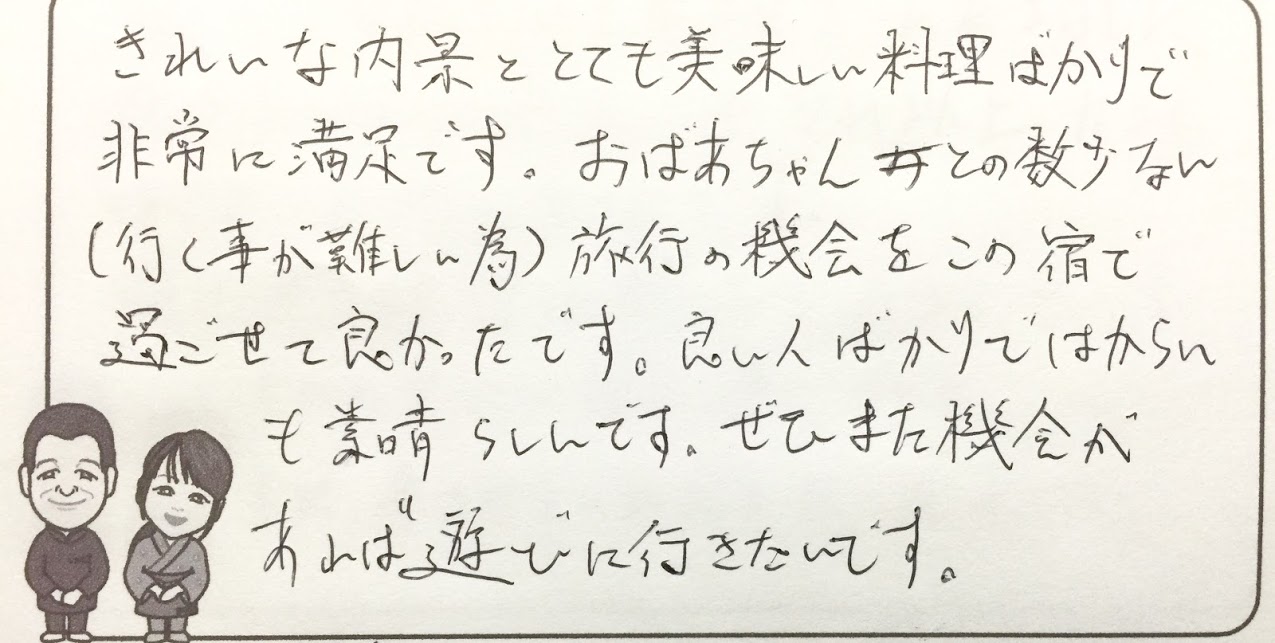 きれいな内景ととても美味しい料理ばかりで
非常に満足です。おばあちゃんとの数少ない
(行く事が難しい為)旅行の機会をこの宿で
過ごせて良かったです。良い人ばかりではからい
も素晴らしいです。ぜひまた機会が
あれば遊びに行きたいです。